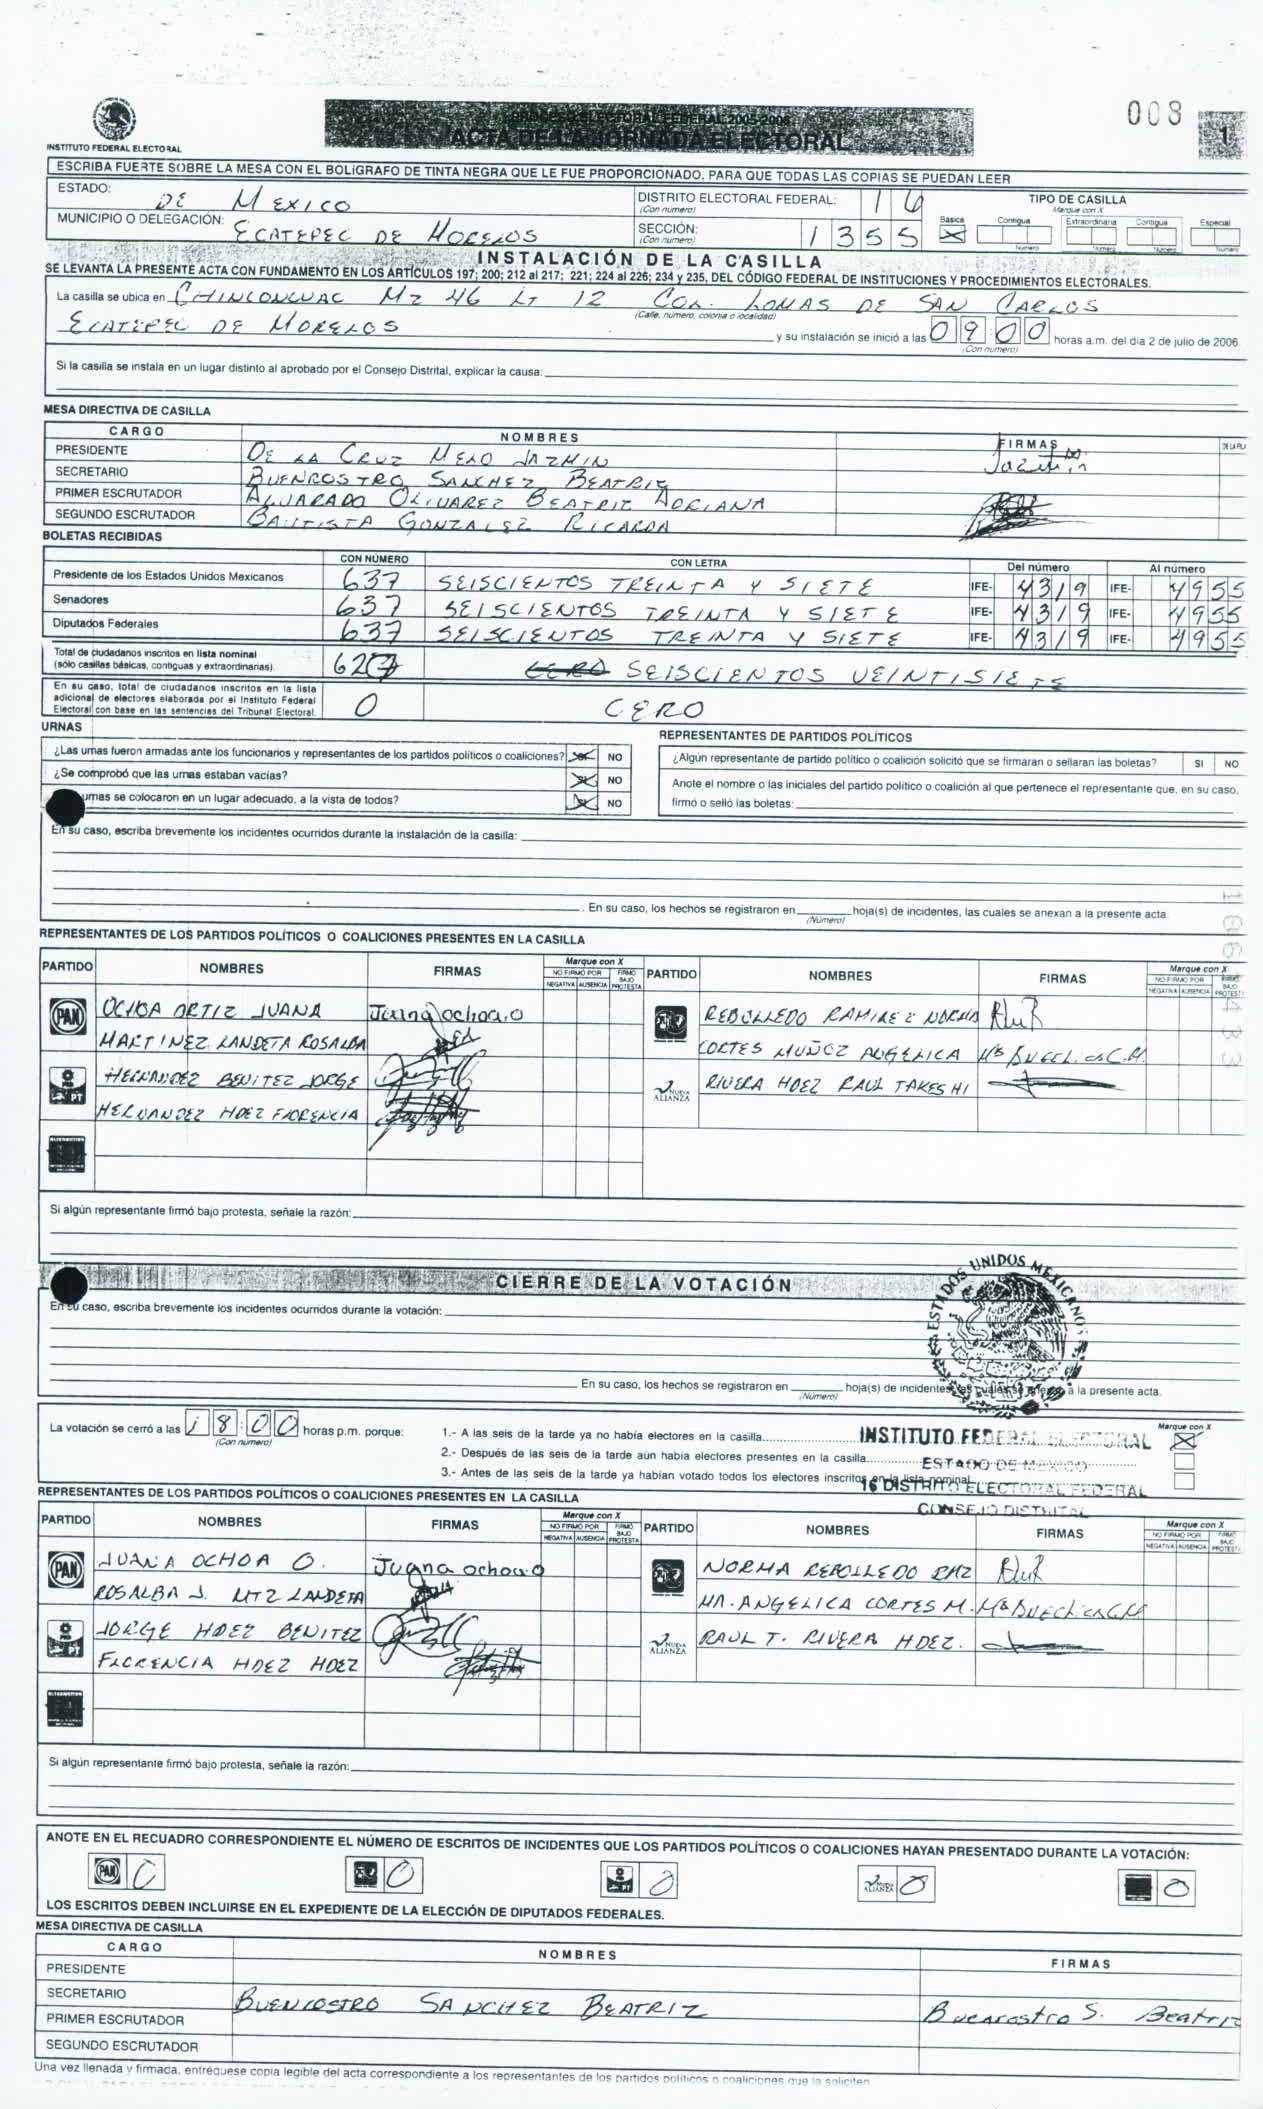 008
INSTITUTO FEDERAL ELECTORAL
PROCESO ELECTORAL FEDERAL 2005-2006
ACTA DE LA JORNADA ELECTORAL
1
ESCRIBA FUERTE SOBRE LA MESA CON EL BOLÍGRAFO DE TINTA NEGRA QUE LE FUE PROPORCIONADO, PARA QUE TODAS LAS COPIAS SE PUEDAN LEER
ESTADO: DE MEXICO
DISTRITO ELECTORAL FEDERAL: 16
(Con número)
TIPO DE CASILLA
Marque con X
MUNICIPIO O DELEGACIÓN: ECATEPEC DE MORELOS
SECCIÓN: 1355
(Con número)
Básica X Contigua Extraordinaria Contigua Especial
Número Número Número Número
INSTALACIÓN DE LA CASILLA
SE LEVANTA LA PRESENTE ACTA CON FUNDAMENTO EN LOS ARTÍCULOS 197; 200; 212 al 217; 221; 224 al 226; 234 y 235, DEL CÓDIGO FEDERAL DE INSTITUCIONES Y PROCEDIMIENTOS ELECTORALES.
La casilla se ubica en CHINCONCUAC MZ 46 LT 12 COL. LOMAS DE SAN CARLOS
(Calle, número, colonia o localidad)
ECATEPEC DE MORELOS y su instalación se inició a las 09:00 horas a.m. del día 2 de julio de 2006
(Con número)
Si la casilla se instala en un lugar distinto al aprobado por el Consejo Distrital, explicar la causa:
MESA DIRECTIVA DE CASILLA
CARGO NOMBRES FIRMAS
PRESIDENTE DE LA CRUZ MELO JAZMIN Jazmin
SECRETARIO BUENROSTRO SANCHEZ BEATRIZ
PRIMER ESCRUTADOR ALVARADO OLIVAREZ BEATRIZ ADRIANA
SEGUNDO ESCRUTADOR BAUTISTA GONZALEZ RICARDA
BOLETAS RECIBIDAS
CON NÚMERO CON LETRA Del número Al número
Presidente de los Estados Unidos Mexicanos 637 SEISCIENTOS TREINTA Y SIETE IFE- 4319 IFE- 4955
Senadores 637 SEISCIENTOS TREINTA Y SIETE IFE- 4319 IFE- 4955
Diputados Federales 637 SEISCIENTOS TREINTA Y SIETE IFE- 4319 IFE- 4955
Total de ciudadanos inscritos en lista nominal
(sólo casillas básicas, contiguas y extraordinarias). 627 CERO SEISCIENTOS VEINTISIETE
En su caso, total de ciudadanos inscritos en la lista
adicional de electores elaborada por el Instituto Federal
Electoral con base en las sentencias del Tribunal Electoral. 0 CERO
URNAS
REPRESENTANTES DE PARTIDOS POLÍTICOS
¿Las urnas fueron armadas ante los funcionarios y representantes de los partidos políticos o coaliciones? SI NO
¿Algún representante de partido político o coalición solicitó que se firmaran o sellaran las boletas? SI NO
¿Se comprobó que las urnas estaban vacías? SI NO
Anote el nombre o las iniciales del partido político o coalición al que pertenece el representante que, en su caso,
urnas se colocaron en un lugar adecuado, a la vista de todos? SI NO
firmó o selló las boletas:
En su caso, escriba brevemente los incidentes ocurridos durante la instalación de la casilla:
. En su caso, los hechos se registraron en hoja(s) de incidentes, las cuales se anexan a la presente acta.
(Número)
REPRESENTANTES DE LOS PARTIDOS POLÍTICOS O COALICIONES PRESENTES EN LA CASILLA
PARTIDO NOMBRES FIRMAS Marque con X NO FIRMÓ POR NEGATIVA AUSENCIA FIRMÓ BAJO PROTESTA
PARTIDO NOMBRES FIRMAS Marque con X NO FIRMÓ POR NEGATIVA AUSENCIA FIRMÓ BAJO PROTESTA
PAN OCHOA ORTIZ JUANA Juana ochoa O
REBOLLEDO RAMIREZ NORMA
MARTINEZ LANDETA ROSALBA
CORTES MUÑOZ ANGELICA
PT HERNANDEZ BENITEZ JORGE
NUEVA ALIANZA RIVERA HDEZ RAUL TAKESHI
HERNANDEZ HDEZ FLORENCIA
Si algún representante firmó bajo protesta, señale la razón:
CIERRE DE LA VOTACIÓN
ESTADOS UNIDOS MEXICANOS
En su caso, escriba brevemente los incidentes ocurridos durante la votación:
En su caso, los hechos se registraron en hoja(s) de incidentes, las cuales se anexan a la presente acta.
(Número)
La votación se cerró a las 18:00 horas p.m. porque:
(Con número)
1.- A las seis de la tarde ya no había electores en la casilla
Marque con X
X
2.- Después de las seis de la tarde aún había electores presentes en la casilla
3.- Antes de las seis de la tarde ya habían votado todos los electores inscritos en la lista nominal
INSTITUTO FEDERAL ELECTORAL
ESTADO DE MEXICO
16 DISTRITO ELECTORAL FEDERAL
CONSEJO DISTRITAL
REPRESENTANTES DE LOS PARTIDOS POLÍTICOS O COALICIONES PRESENTES EN LA CASILLA
PARTIDO NOMBRES FIRMAS Marque con X NO FIRMÓ POR NEGATIVA AUSENCIA FIRMÓ BAJO PROTESTA
PARTIDO NOMBRES FIRMAS Marque con X NO FIRMÓ POR NEGATIVA AUSENCIA FIRMÓ BAJO PROTESTA
PAN JUANA OCHOA O. Juana ochoa O
NORMA REBOLLEDO RMZ
ROSALBA J. MTZ LANDETA
MA. ANGELICA CORTES M.
PT JORGE HDEZ BENITEZ
NUEVA ALIANZA RAUL T. RIVERA HDEZ.
FLORENCIA HDEZ HDEZ
Si algún representante firmó bajo protesta, señale la razón:
ANOTE EN EL RECUADRO CORRESPONDIENTE EL NÚMERO DE ESCRITOS DE INCIDENTES QUE LOS PARTIDOS POLÍTICOS O COALICIONES HAYAN PRESENTADO DURANTE LA VOTACIÓN:
PAN 0 0 PT 0 NUEVA ALIANZA 0 0
LOS ESCRITOS DEBEN INCLUIRSE EN EL EXPEDIENTE DE LA ELECCIÓN DE DIPUTADOS FEDERALES.
MESA DIRECTIVA DE CASILLA
CARGO NOMBRES FIRMAS
PRESIDENTE
SECRETARIO BUENROSTRO SANCHEZ BEATRIZ Buenrostro S. Beatriz
PRIMER ESCRUTADOR
SEGUNDO ESCRUTADOR
Una vez llenada y firmada, entréguese copia legible del acta correspondiente a los representantes de los partidos políticos o coaliciones que la soliciten